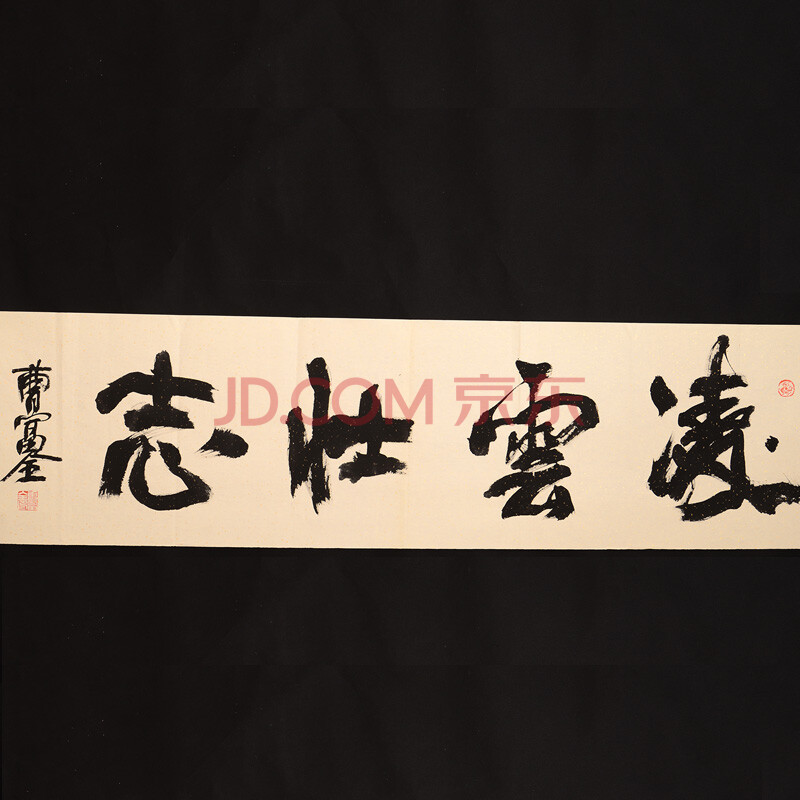 凌雲壮志
曹富全
JD.COM 京东